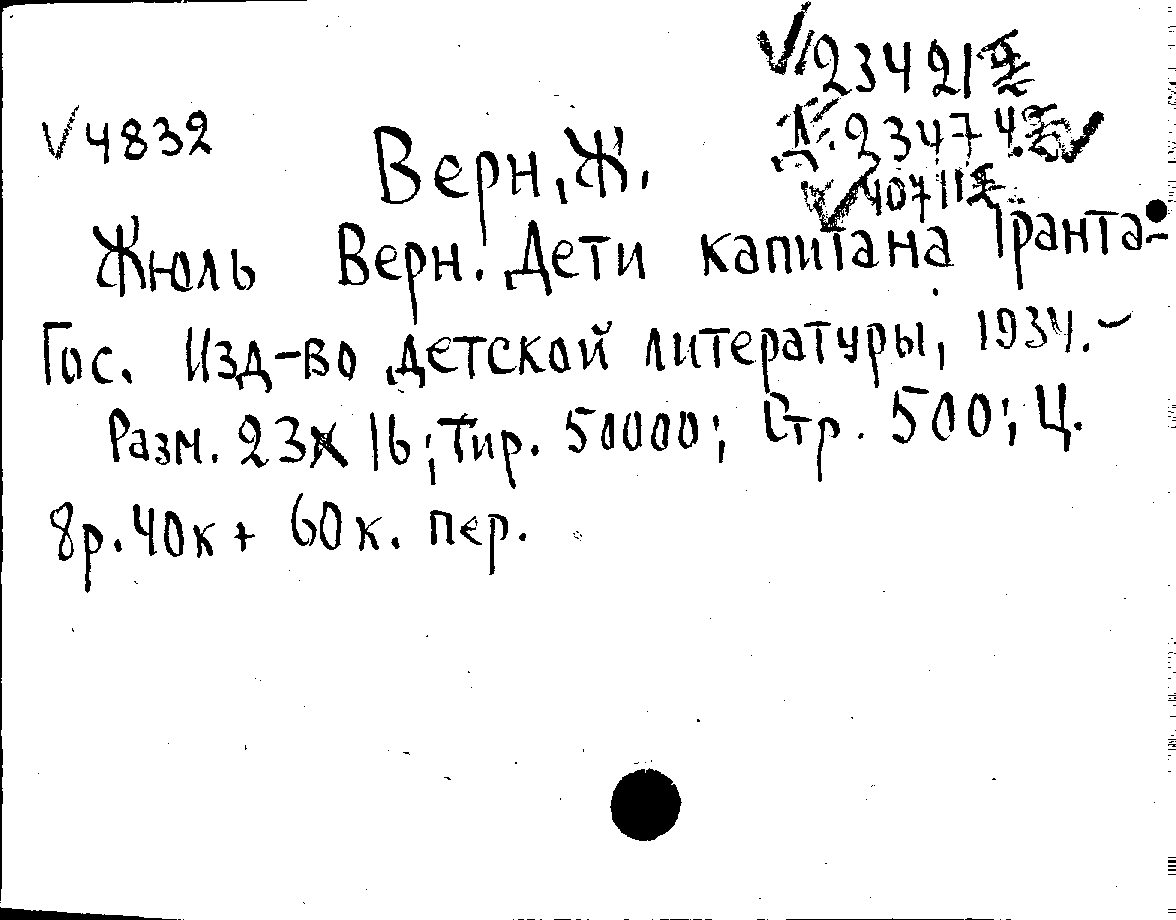 √ 23421
√ 4832
Д. 23474 √
Верн, Ж.
√ 40711
Жюль Верн. Дети капитана Гранта-
Гос. Изд-во детской литературы, 1934.-
Разм. 23х16; Тир. 50000; Стр. 500; Ц.
8р.40к + 60к. пер.